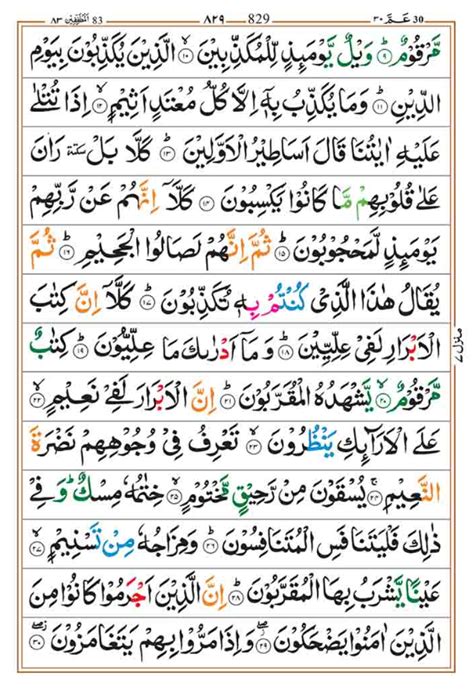 اَلْمُطَفِّفِيْن ٨٣ 83 ٨٢٩ 829 عَمَّ ٣٠ 30
مَّرْقُوْمٌ ۙ‏﴿۹﴾ وَيْلٌ يَّوْمَئِذٍ لِّلْمُكَذِّبِيْنَ ۙ‏﴿۱۰﴾ الَّذِيْنَ يُكَذِّبُوْنَ بِيَوْمِ
الدِّيْنِ ؕ‏﴿۱۱﴾ وَمَا يُكَذِّبُ بِهٖۤ اِلَّا كُلُّ مُعْتَدٍ اَثِيْمٍ ۙ‏﴿۱۲﴾ اِذَا تُتْلٰى
عَلَيْهِ اٰيٰتُنَا قَالَ اَسَاطِيْرُ الْاَوَّلِيْنَ ؕ‏﴿۱۳﴾ كَلَّا بَلْ سكتة رَانَ
عَلٰى قُلُوْبِهِمْ مَّا كَانُوْا يَكْسِبُوْنَ‏﴿۱۴﴾ كَلَّاۤ اِنَّهُمْ عَنْ رَّبِّهِمْ
يَوْمَئِذٍ لَّمَحْجُوْبُوْنَ ؕ‏﴿۱۵﴾ ثُمَّ اِنَّهُمْ لَصَالُوا الْجَحِيْمِ ؕ‏﴿۱۶﴾ ثُمَّ
يُقَالُ هٰذَا الَّذِىْ كُنْتُمْ بِهٖ تُكَذِّبُوْنَ ؕ‏﴿۱۷﴾ كَلَّاۤ اِنَّ كِتٰبَ
الْاَبْرَارِ لَفِىْ عِلِّيِّيْنَ ؕ‏﴿۱۸﴾ وَمَاۤ اَدْرٰٮكَ مَا عِلِّيُّوْنَ ؕ‏﴿۱۹﴾ كِتٰبٌ
مَّرْقُوْمٌ ۙ‏﴿۲۰﴾ يَّشْهَدُهُ الْمُقَرَّبُوْنَ ؕ‏﴿۲۱﴾ اِنَّ الْاَبْرَارَ لَفِىْ نَعِيْمٍ ۙ‏﴿۲۲﴾
عَلَى الْاَرَآٮِٕكِ يَنْظُرُوْنَ ۙ‏﴿۲۳﴾ تَعْرِفُ فِىْ وُجُوْهِهِمْ نَضْرَةَ
النَّعِيْمِ ۚ‏﴿۲۴﴾ يُسْقَوْنَ مِنْ رَّحِيْقٍ مَّخْتُوْمٍ ۙ‏﴿۲۵﴾ خِتٰمُهٗ مِسْكٌ ؕ وَفِىْ
ذٰلِكَ فَلْيَتَنَافَسِ الْمُتَنَافِسُوْنَ ؕ‏﴿۲۶﴾ وَمِزَاجُهٗ مِنْ تَسْنِيْمٍ ۙ‏﴿۲۷﴾
عَيْنًا يَّشْرَبُ بِهَا الْمُقَرَّبُوْنَ ؕ‏﴿۲۸﴾ اِنَّ الَّذِيْنَ اَجْرَمُوْا كَانُوْا مِنَ
الَّذِيْنَ اٰمَنُوْا يَضْحَكُوْنَ ۖ‏﴿۲۹﴾ وَاِذَا مَرُّوْا بِهِمْ يَتَغَامَزُوْنَ ۖ‏﴿۳۰﴾
منزل ٧